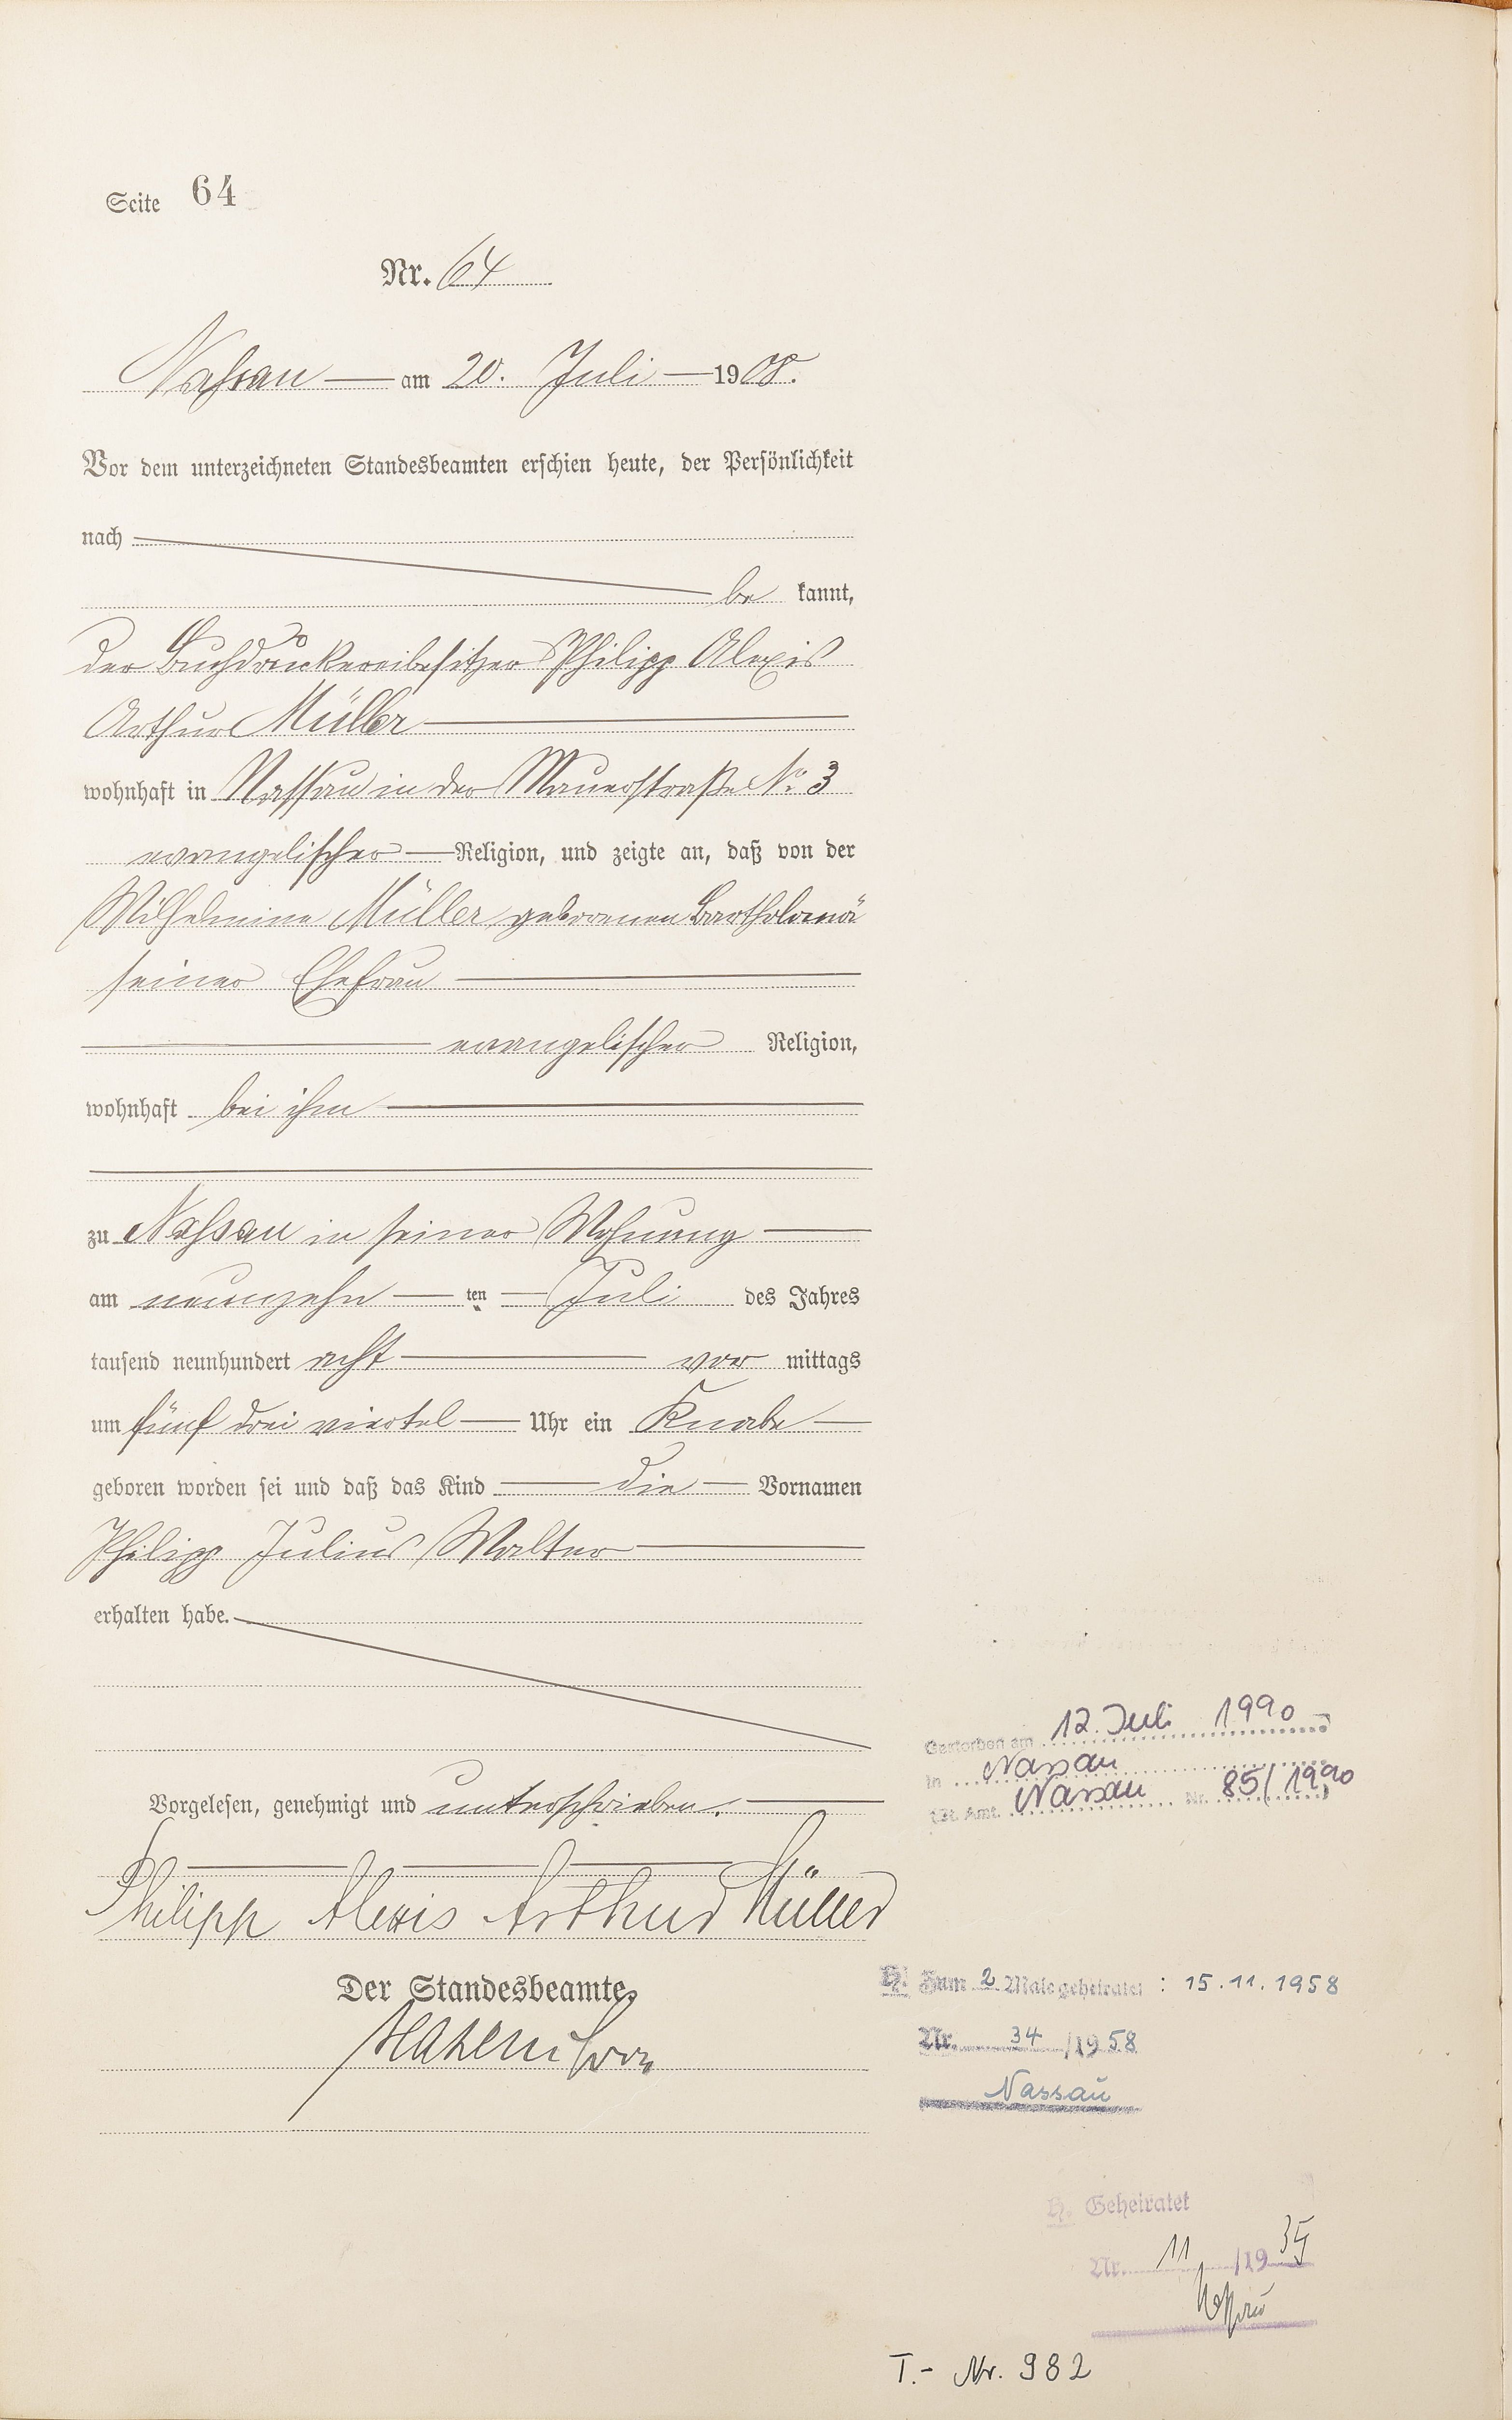 Seite 64
Nr. 64
Nassau — am 20. Juli — 1908.
Vor dem unterzeichneten Standesbeamten erschien heute, der Persönlichkeit
nach
be kannt,
der Buchdruckereibesitzer Philipp Alexis
Arthur Müller
wohnhaft in Nassau in der Mauerstraße No. 3
evangelischer — Religion, und zeigte an, daß von der
Wilhelmine Müller geborenen Bartholomä
seiner Ehefrau
evangelischer Religion,
wohnhaft bei ihm
zu Nassau in seiner Wohnung
am neunzehn — ten — Juli des Jahres
tausend neunhundert acht — vor mittags
um fünf drei viertel — Uhr ein Knabe —
geboren worden sei und daß das Kind — die — Vornamen
Philipp Julius Walter
erhalten habe.
Vorgelesen, genehmigt und unterschrieben.
Philipp Alexis Arthur Müller
Der Standesbeamte,
Gestorben am 12. Juli 1990
in Nassau
(St. Amt. Nassau Nr. 85/1990)
H. Zum 2 Male geheiratet : 15.11.1958
Nr. 34 /1958
Nassau
H. Geheiratet
Nr. 11 /1935
Nassau
T.- Nr. 982